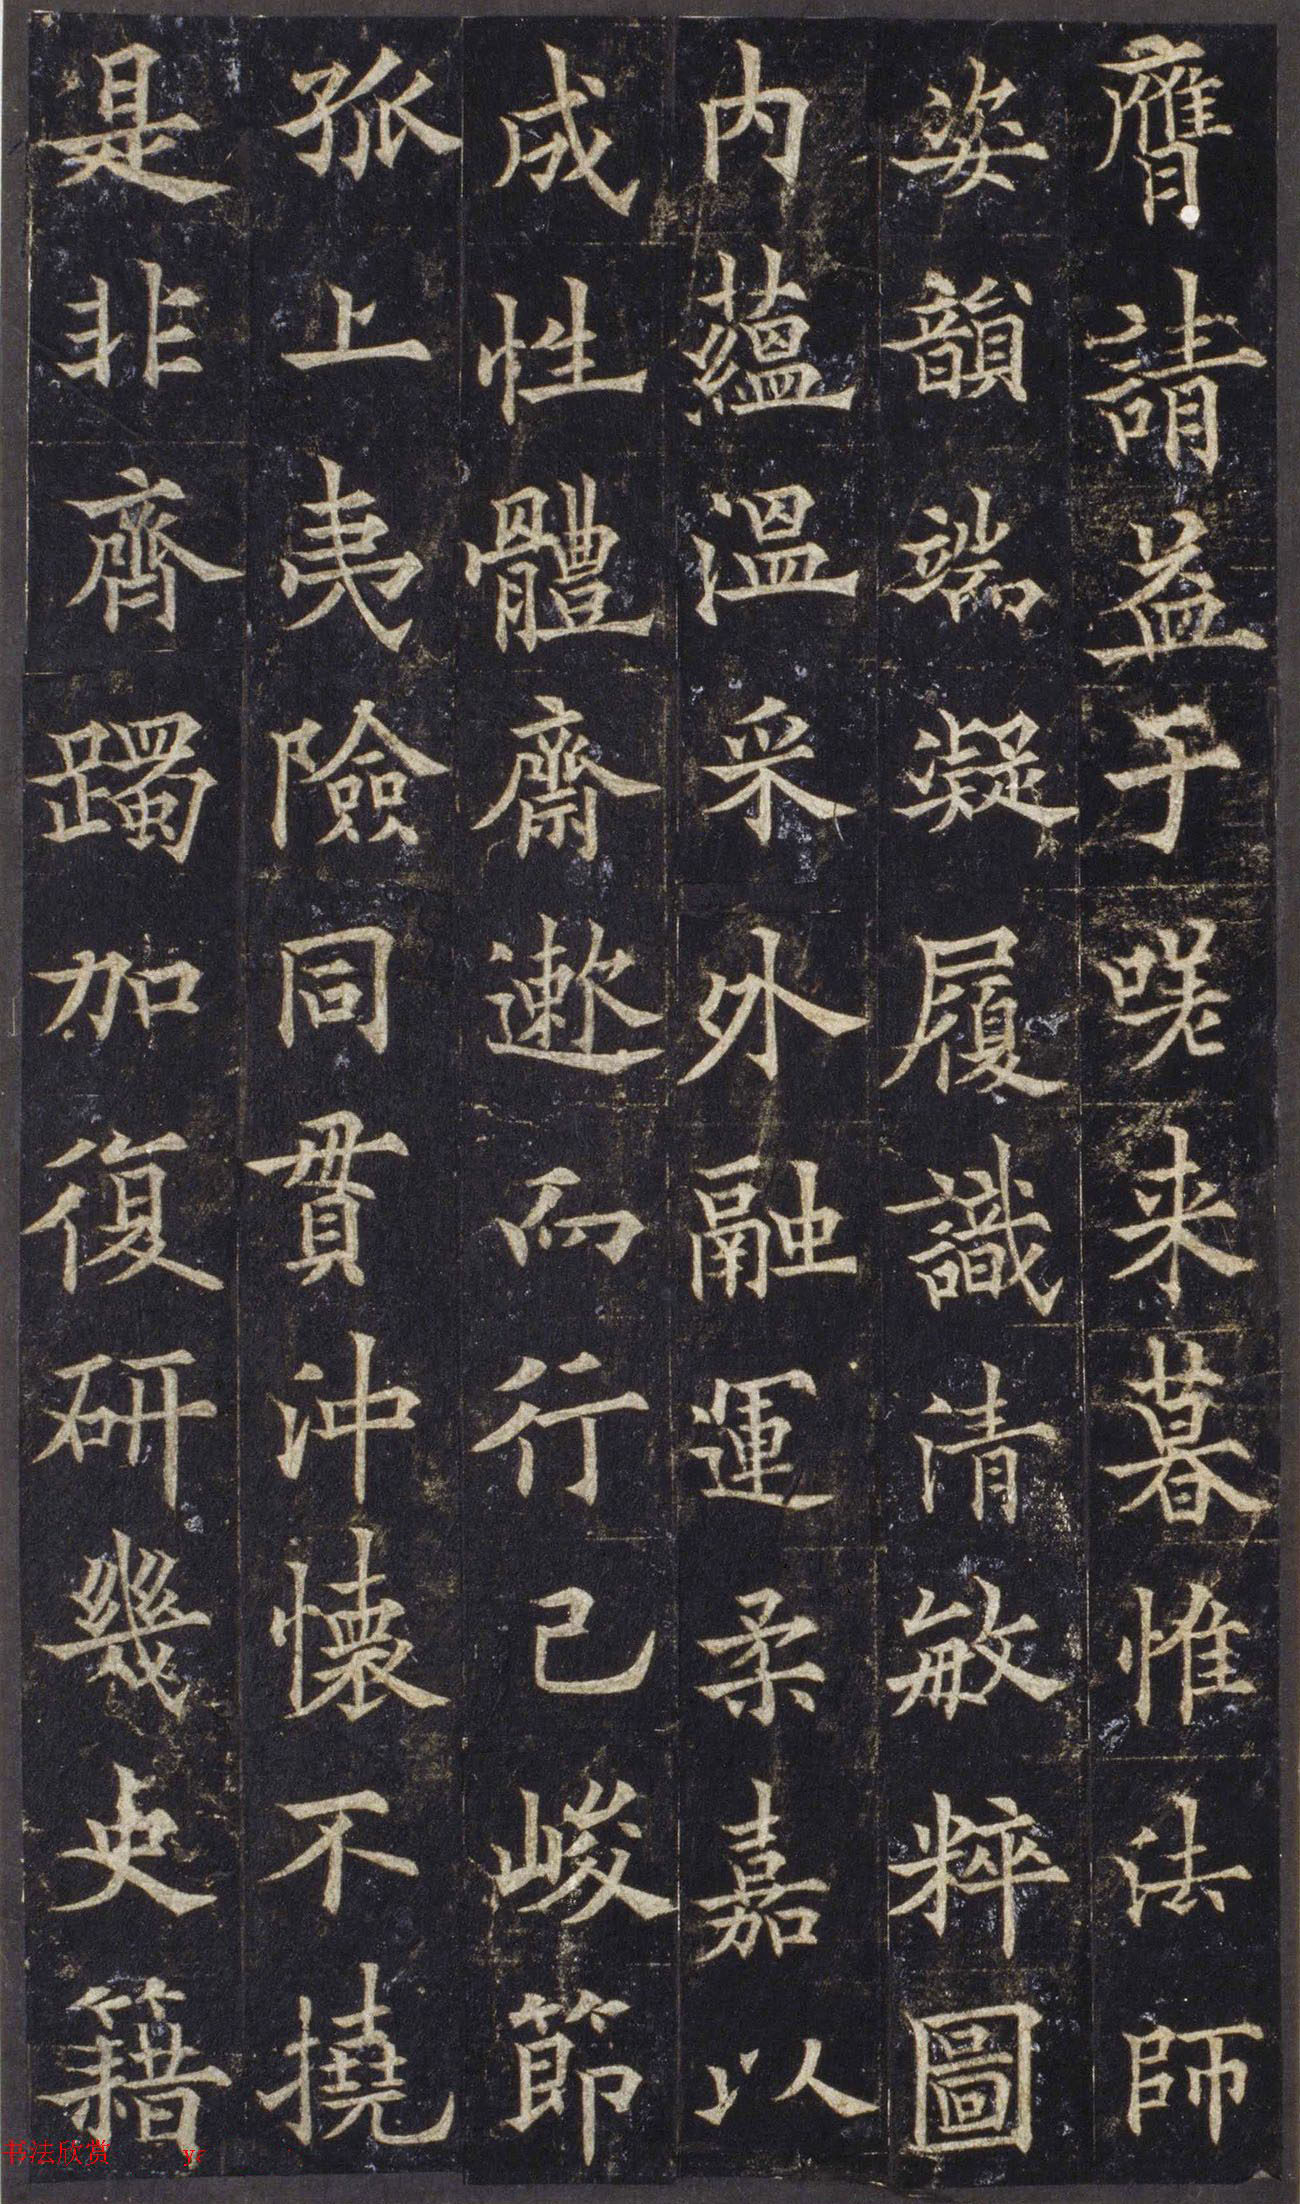 膺請益于嘊来暮惟法師
姿韻端凝履識清敏粹圖
内蘊溫采外融運柔嘉以
成性體齋遬而行己峻節
孤上夷險同貫沖懷不撓
是非齊躅加復研幾史籍
书法欣赏